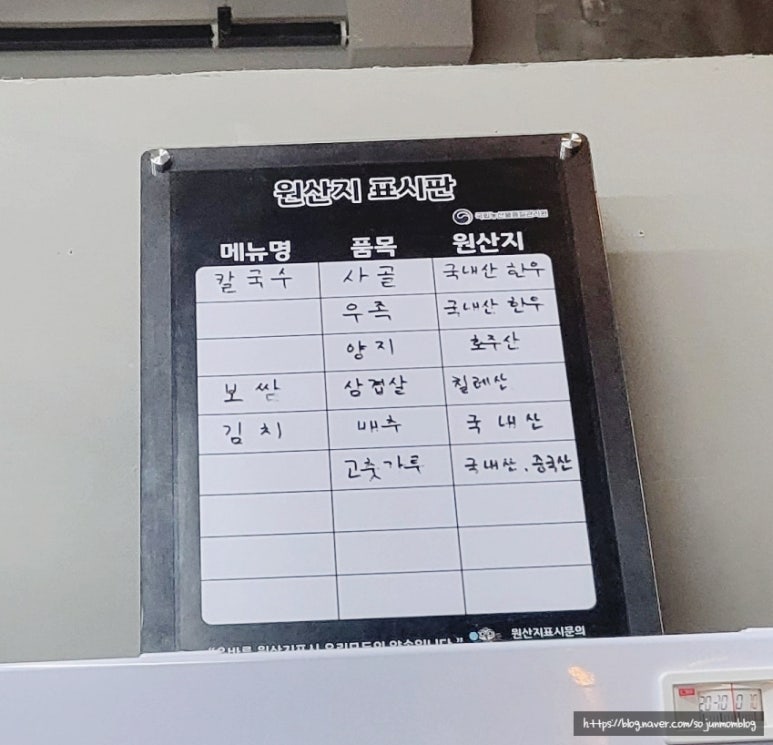 원산지 표시판
국립농산물품질관리원
메뉴명 품목 원산지
칼국수 사골 국내산 한우
우족 국내산 한우
양지 호주산
보쌈 삼겹살 칠레산
김치 배추 국내산
고춧가루 국내산, 중국산
원산지표시문의
https://blog.naver.com/sojunmomblog